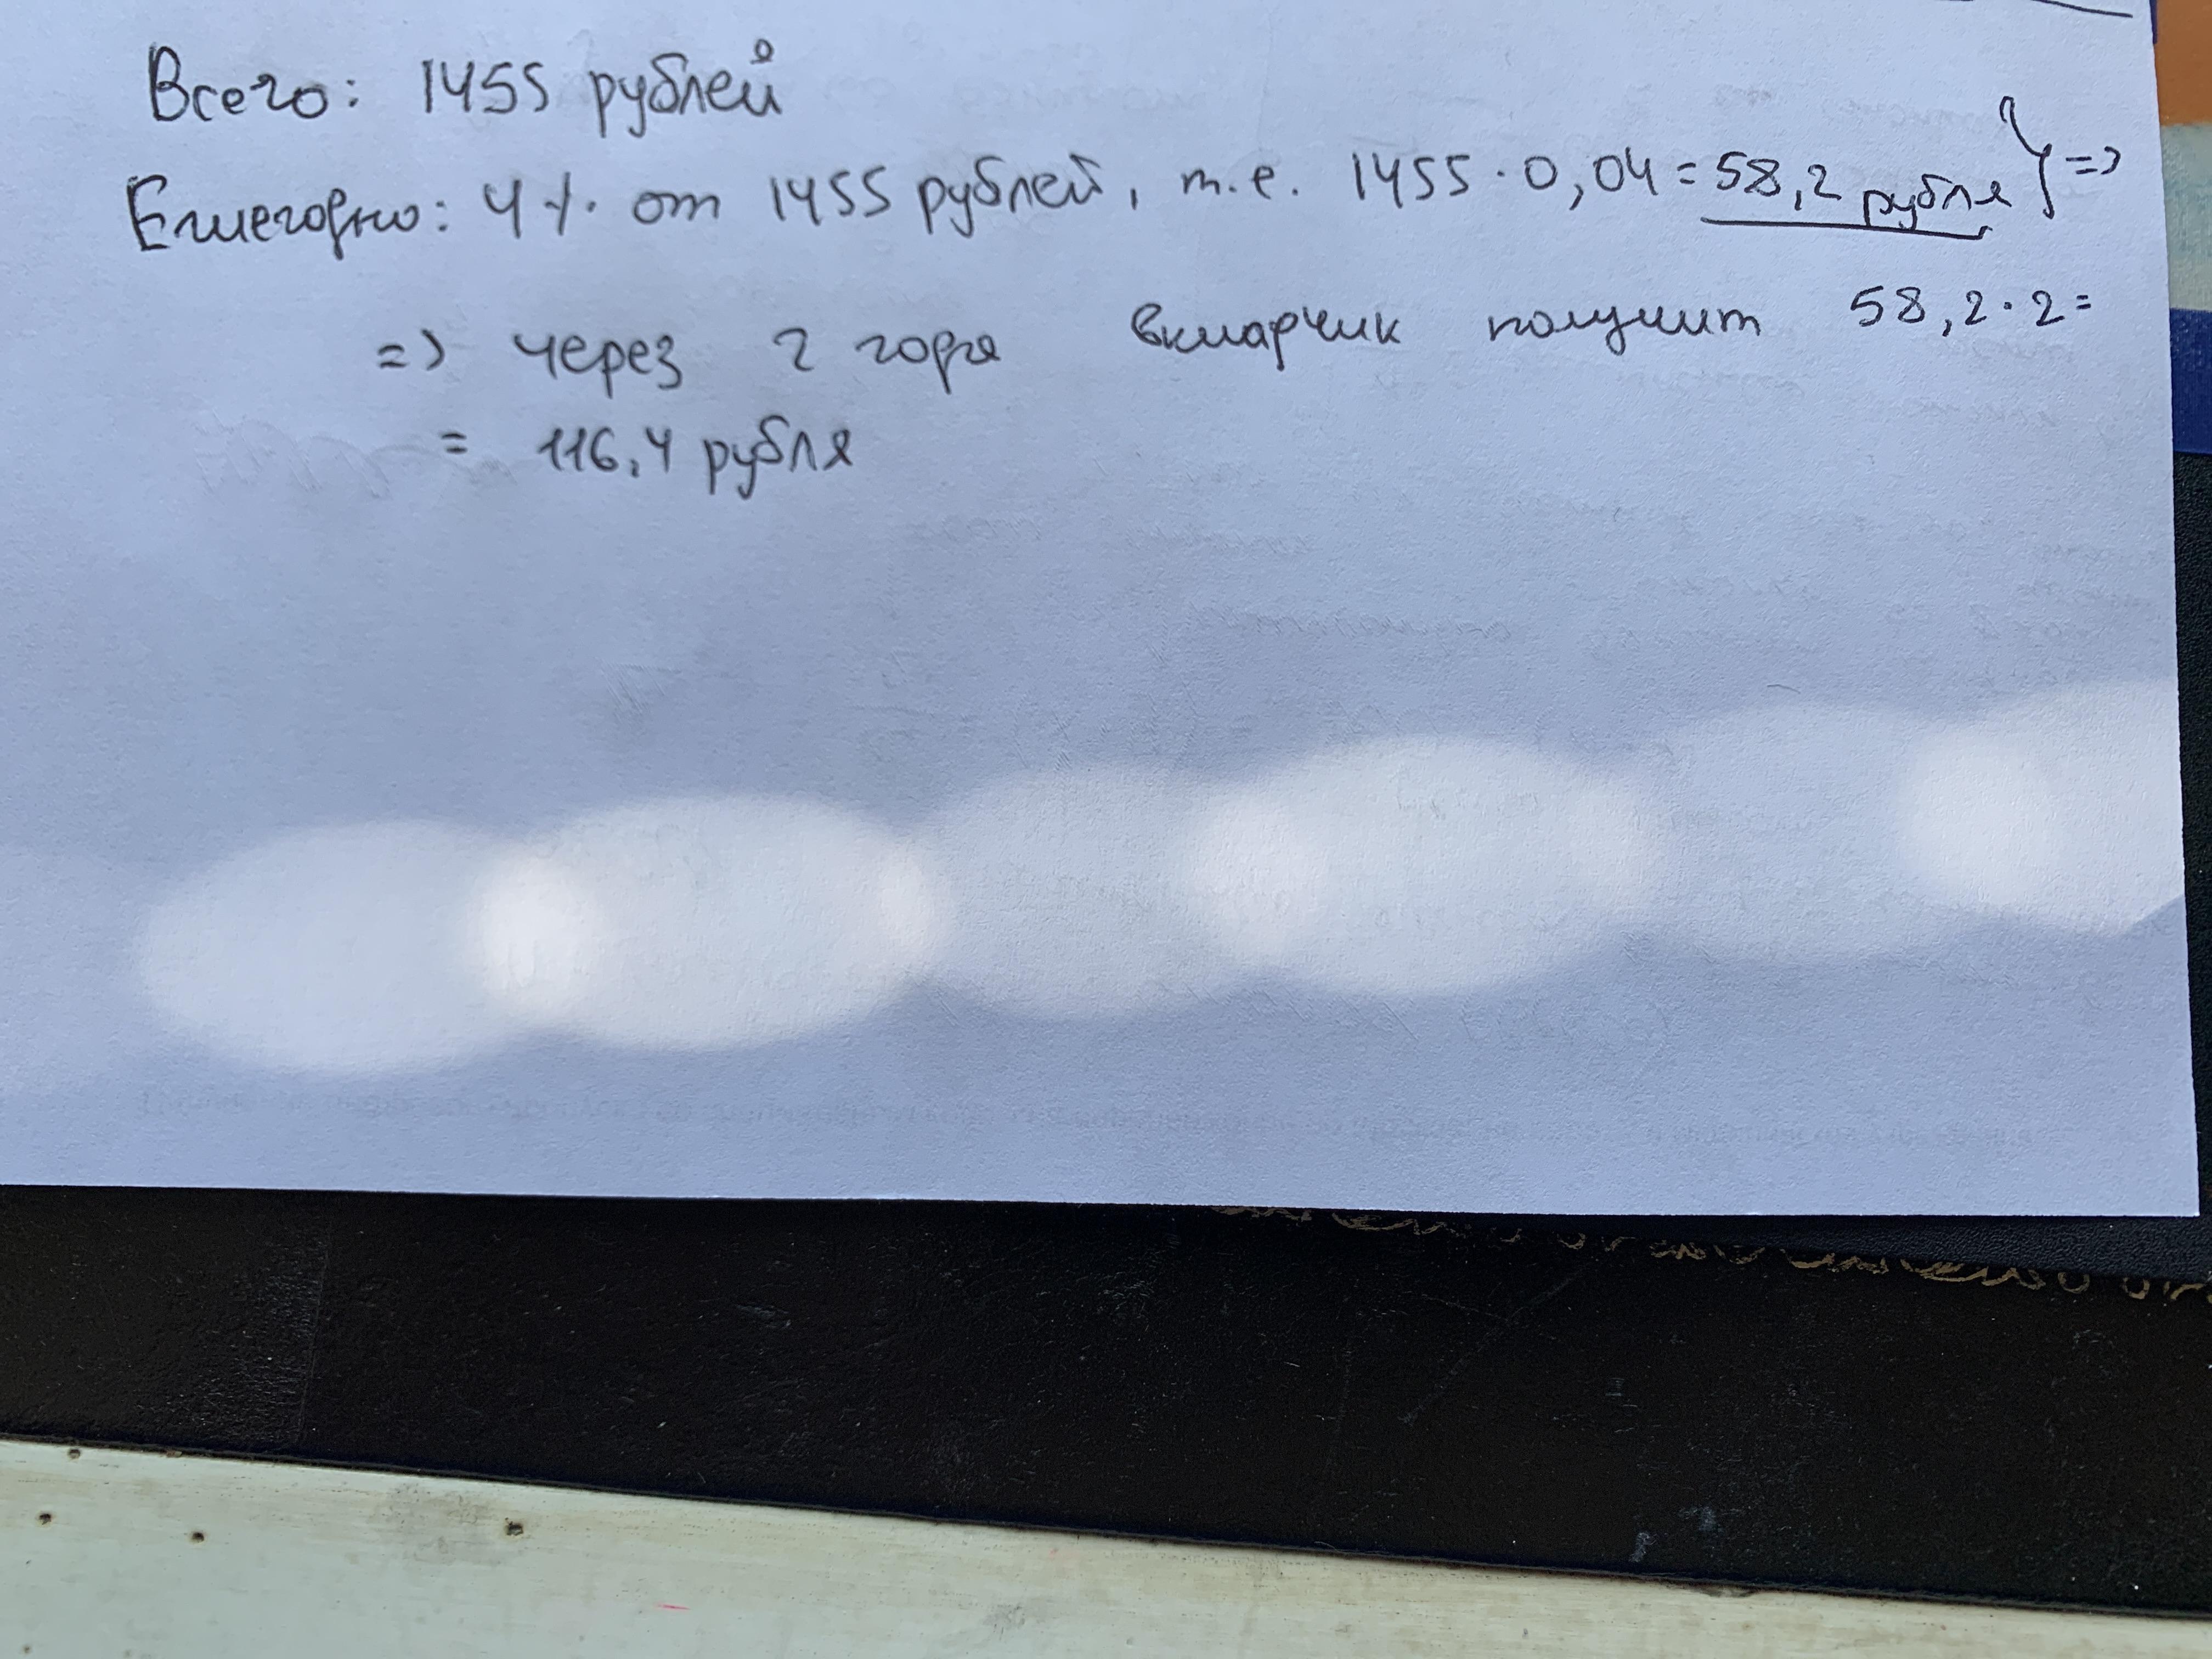 Всего: 1455 рублей
Ежегодно: 4% от 1455 рублей, т.е. 1455 · 0,04 = 58,2 рубля } =>
=> через 2 года вкладчик получит 58,2 · 2 =
= 116,4 рубля